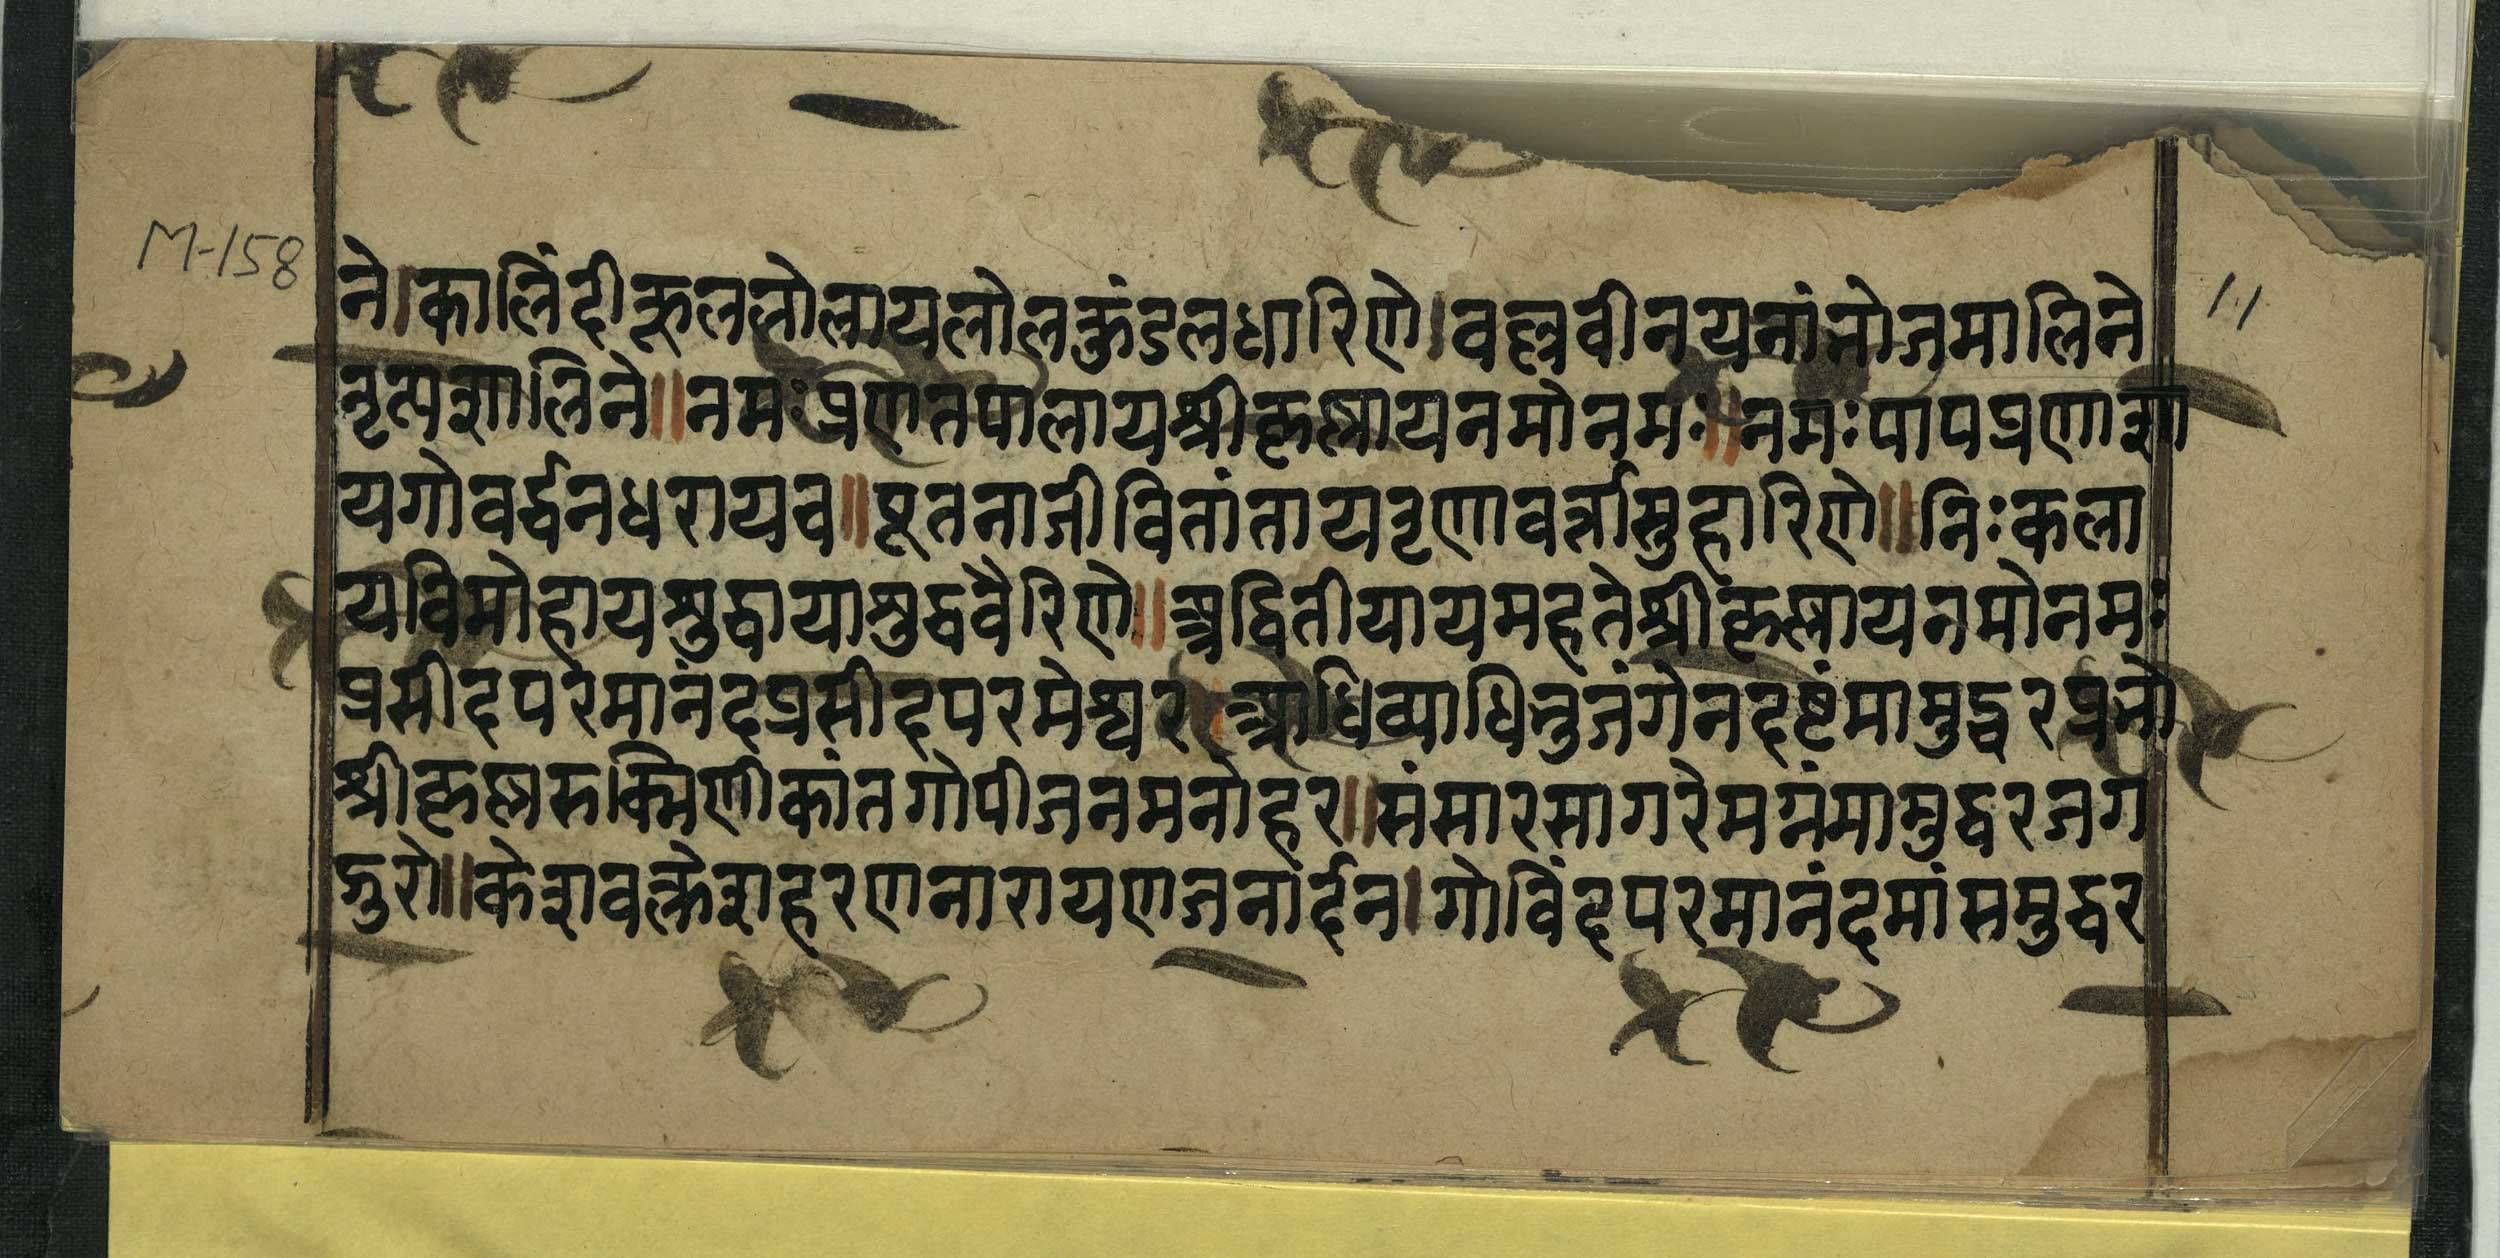 M-158
ने।कालिंदीकूललोलायलोलकुंडलधारिणे।वल्लवीनयनांभोजमालिने
नृत्यशालिने॥नमःप्रणतपालायश्रीकृष्णायनमोनमः॥नमःपापप्रणाशा
यगोवर्द्धनधरायच॥पूतनाजीवितांतायतृणावर्त्तासुहारिणे॥निःकला
यविमोहायशुद्धायाशुद्धवैरिणे॥अद्वितीयायमहतेश्रीकृष्णायनमोनमः
प्रसीदपरमानंदप्रसीदपरमेश्वर।आधिव्याधिभुजंगेनदष्टंमामुद्धरप्रभो
श्रीकृष्णरुक्मिणीकांतगोपीजनमनोहर॥संसारसागरेमग्नंमामुद्धरजग
द्गुरो॥केशवक्लेशहरणनारायणजनार्दन।गोविंदपरमानंदमांसमुद्धर